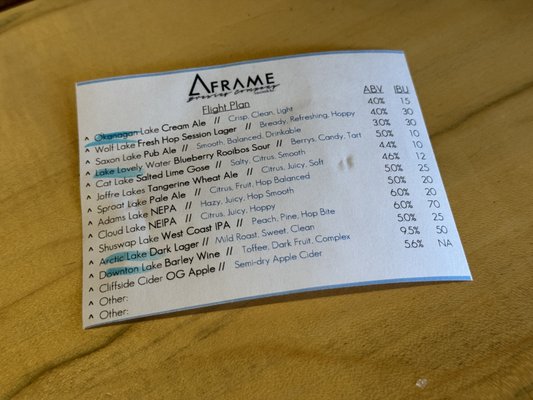 AFRAME
BREWING COMPANY
Flight Plan
ABV IBU
^ Okanagan Lake Cream Ale // Crisp, Clean, Light 4.0% 15
^ Wolf Lake Fresh Hop Session Lager // Bready, Refreshing, Hoppy 4.0% 30
^ Saxon Lake Pub Ale // Smooth, Balanced, Drinkable 3.0% 30
^ Lake Lovely Water Blueberry Rooibos Sour // Berrys, Candy, Tart 5.0% 10
^ Cat Lake Salted Lime Gose // Salty, Citrus, Smooth 4.4% 10
^ Joffre Lakes Tangerine Wheat Ale // Citrus, Juicy, Soft 4.6% 12
^ Sproat Lake Pale Ale // Citrus, Fruit, Hop Balanced 5.0% 25
^ Adams Lake NEPA // Hazy, Juicy, Hop Smooth 5.0% 20
^ Cloud Lake NEIPA // Citrus, Juicy, Hoppy 6.0% 20
^ Shuswap Lake West Coast IPA // Peach, Pine, Hop Bite 6.0% 70
^ Arctic Lake Dark Lager // Mild Roast, Sweet, Clean 5.0% 25
^ Downton Lake Barley Wine // Toffee, Dark Fruit, Complex 9.5% 50
^ Cliffside Cider OG Apple // Semi-dry Apple Cider 5.6% NA
^ Other:
^ Other: